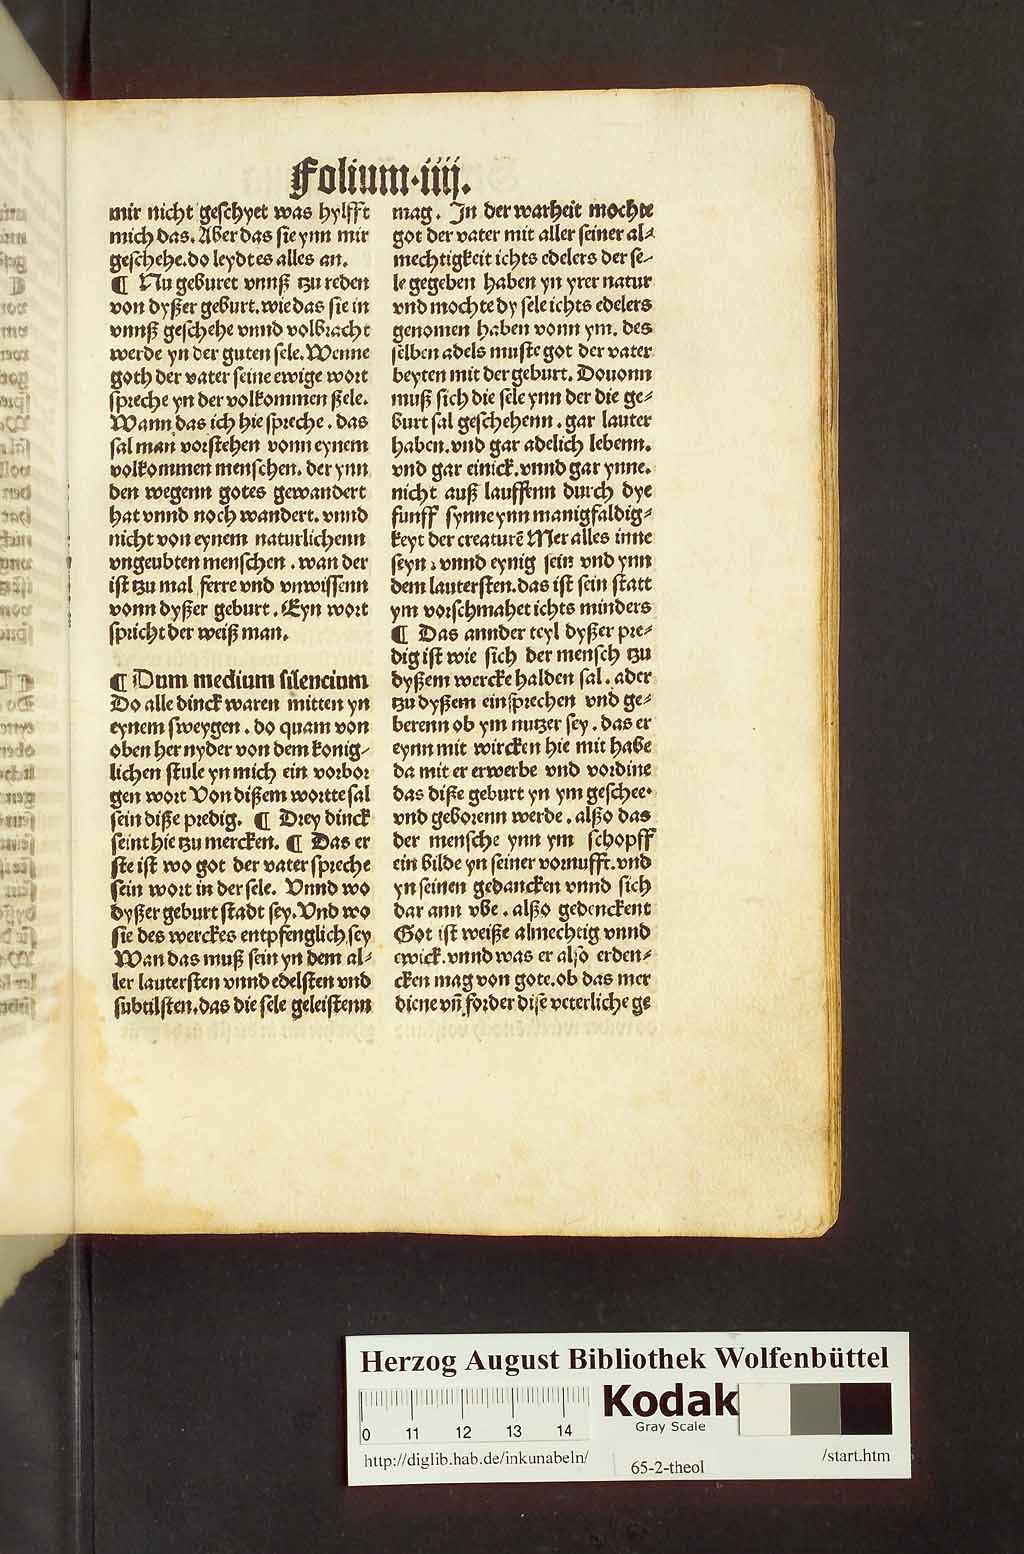 Folium·iiij.
mir nicht geschyet was hylfft
mich das. Aber das sie ynn mir
geschehe. do leydt es alles an.
¶ Nu geburet vnnß tzu reden
von dyßer geburt. wie das sie in
vnnß geschehe vnnd volbracht
werde yn der guten sele. Wenne
goth der vater seine ewige wort
spreche yn der volkommen ßele.
Wann das ich hie spreche. das
sal man vorstehen vonn eynem
volkommen menschen. der ynn
den wegenn gotes gewandert
hat vnnd noch wandert. vnnd
nicht von eynem naturlichenn
vngeubten menschen. wan der
ist tzu mal ferre vnd vnwissenn
vonn dyßer geburt. Eyn wort
spricht der weiß man.
¶ Dum medium silencium
Do alle dinck waren mitten yn
eynem sweygen. do quam von
oben her nyder von dem konig-
lichen stule yn mich ein vorbor
gen wort Von dißem wortte sal
sein diße predig. ¶ Drey dinck
seint hie tzu mercken. ¶ Das er
ste ist wo got der vater spreche
sein wort in der sele. Vnnd wo
dyßer geburt stadt sey. Vnd wo
sie des werckes entpfenglich sey
Wan das muß sein yn dem al-
ler lautersten vnnd edelsten vnd
subtilsten. das die sele geleistenn
mag. In der warheit mochte
got der vater mit aller seiner al-
mechtigkeit ichts edelers der se-
le gegeben haben yn yrer natur
vnd mochte dy sele ichts edelers
genomen haben vonn ym. des
selben adels muste got der vater
beyten mit der geburt. Douonn
muß sich die sele ynn der die ge-
burt sal geschehenn. gar lauter
haben. vnd gar adelich lebenn.
vnd gar einick. vnnd gar ynne.
nicht auß lauffenn durch dye
funff synne ynn manigfaldig-
keyt der creaturē Mer alles inne
seyn. vnnd eynig sein vnd ynn
dem lautersten. das ist sein statt
ym vorschmahet ichts minders
¶ Das annder teyl dyßer pre-
dig ist wie sich der mensch tzu
dyßem wercke halden sal. ader
tzu dyßem einsprechen vnd ge-
berenn ob ym nutzer sey. das er
eynn mit wircken hie mit habe
da mit er erwerbe vnd vordine
das diße geburt yn ym geschee.
vnd geborenn werde. alßo das
der mensche ynn ym schopff
ein bilde yn seiner vornufft. vnd
yn seinen gedancken vnnd sich
dar ann vbe. alßo gedenckent
Got ist weiße almechtig vnnd
ewick. vnnd was er also erden-
cken mag von gote. ob das mer
diene vñ forder dise veterliche ge
Herzog August Bibliothek Wolfenbüttel
0 11 12 13 14
Kodak
Gray Scale
http://diglib.hab.de/inkunabeln/
65-2-theol
/start.htm